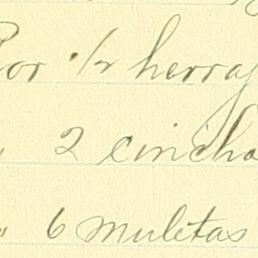 Por 1/2 herraj
" 2 cincha
" 6 muletas